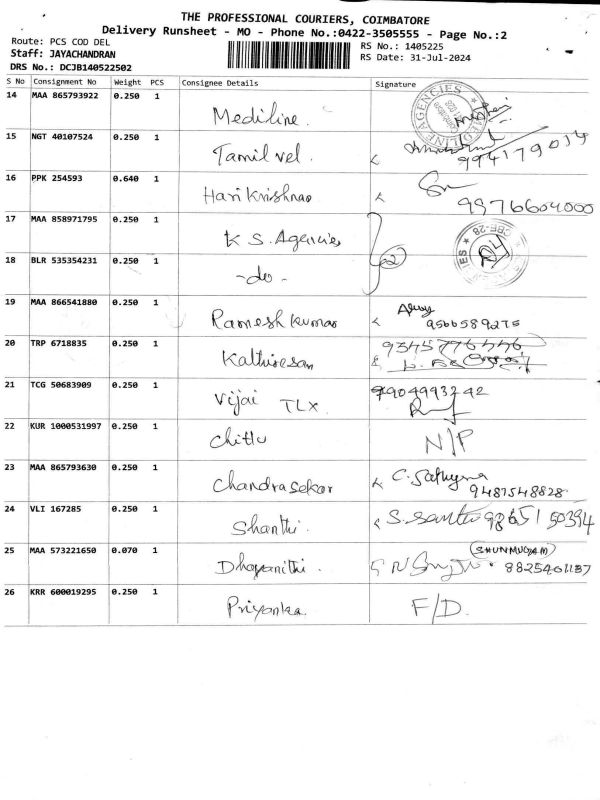 THE PROFESSIONAL COURIERS, COIMBATORE
Delivery Runsheet - MO - Phone No.:0422-3505555 - Page No.:2
Route: PCS COD DEL
RS No.: 1405225
Staff: JAYACHANDRAN
RS Date: 31-Jul-2024
DRS No.: DCJB140522502
S No Consignment No Weight PCS Consignee Details Signature
14 MAA 865793922 0.250 1 Mediline
15 NGT 40107524 0.250 1 Tamil vel.
16 PPK 254593 0.640 1 Hari Krishnan 9976604000
17 MAA 858971795 0.250 1 K S. Agencies
18 BLR 535354231 0.250 1 -do- 2
19 MAA 866541880 0.250 1 Ramesh kumar 9566589275
20 TRP 6718835 0.250 1 Kathiresan 9345776446
21 TCG 50683909 0.250 1 Vijai TLX 7904993242
22 KUR 1000531997 0.250 1 Chittu N/P
23 MAA 865793630 0.250 1 Chandrasekar C. Sathya 9487548828
24 VLI 167285 0.250 1 Shanthi. 98651 50394
25 MAA 573221650 0.070 1 Dhayanithi. (SHUNMUGAM) 8825401137
26 KRR 600019295 0.250 1 Priyanka. F/D.